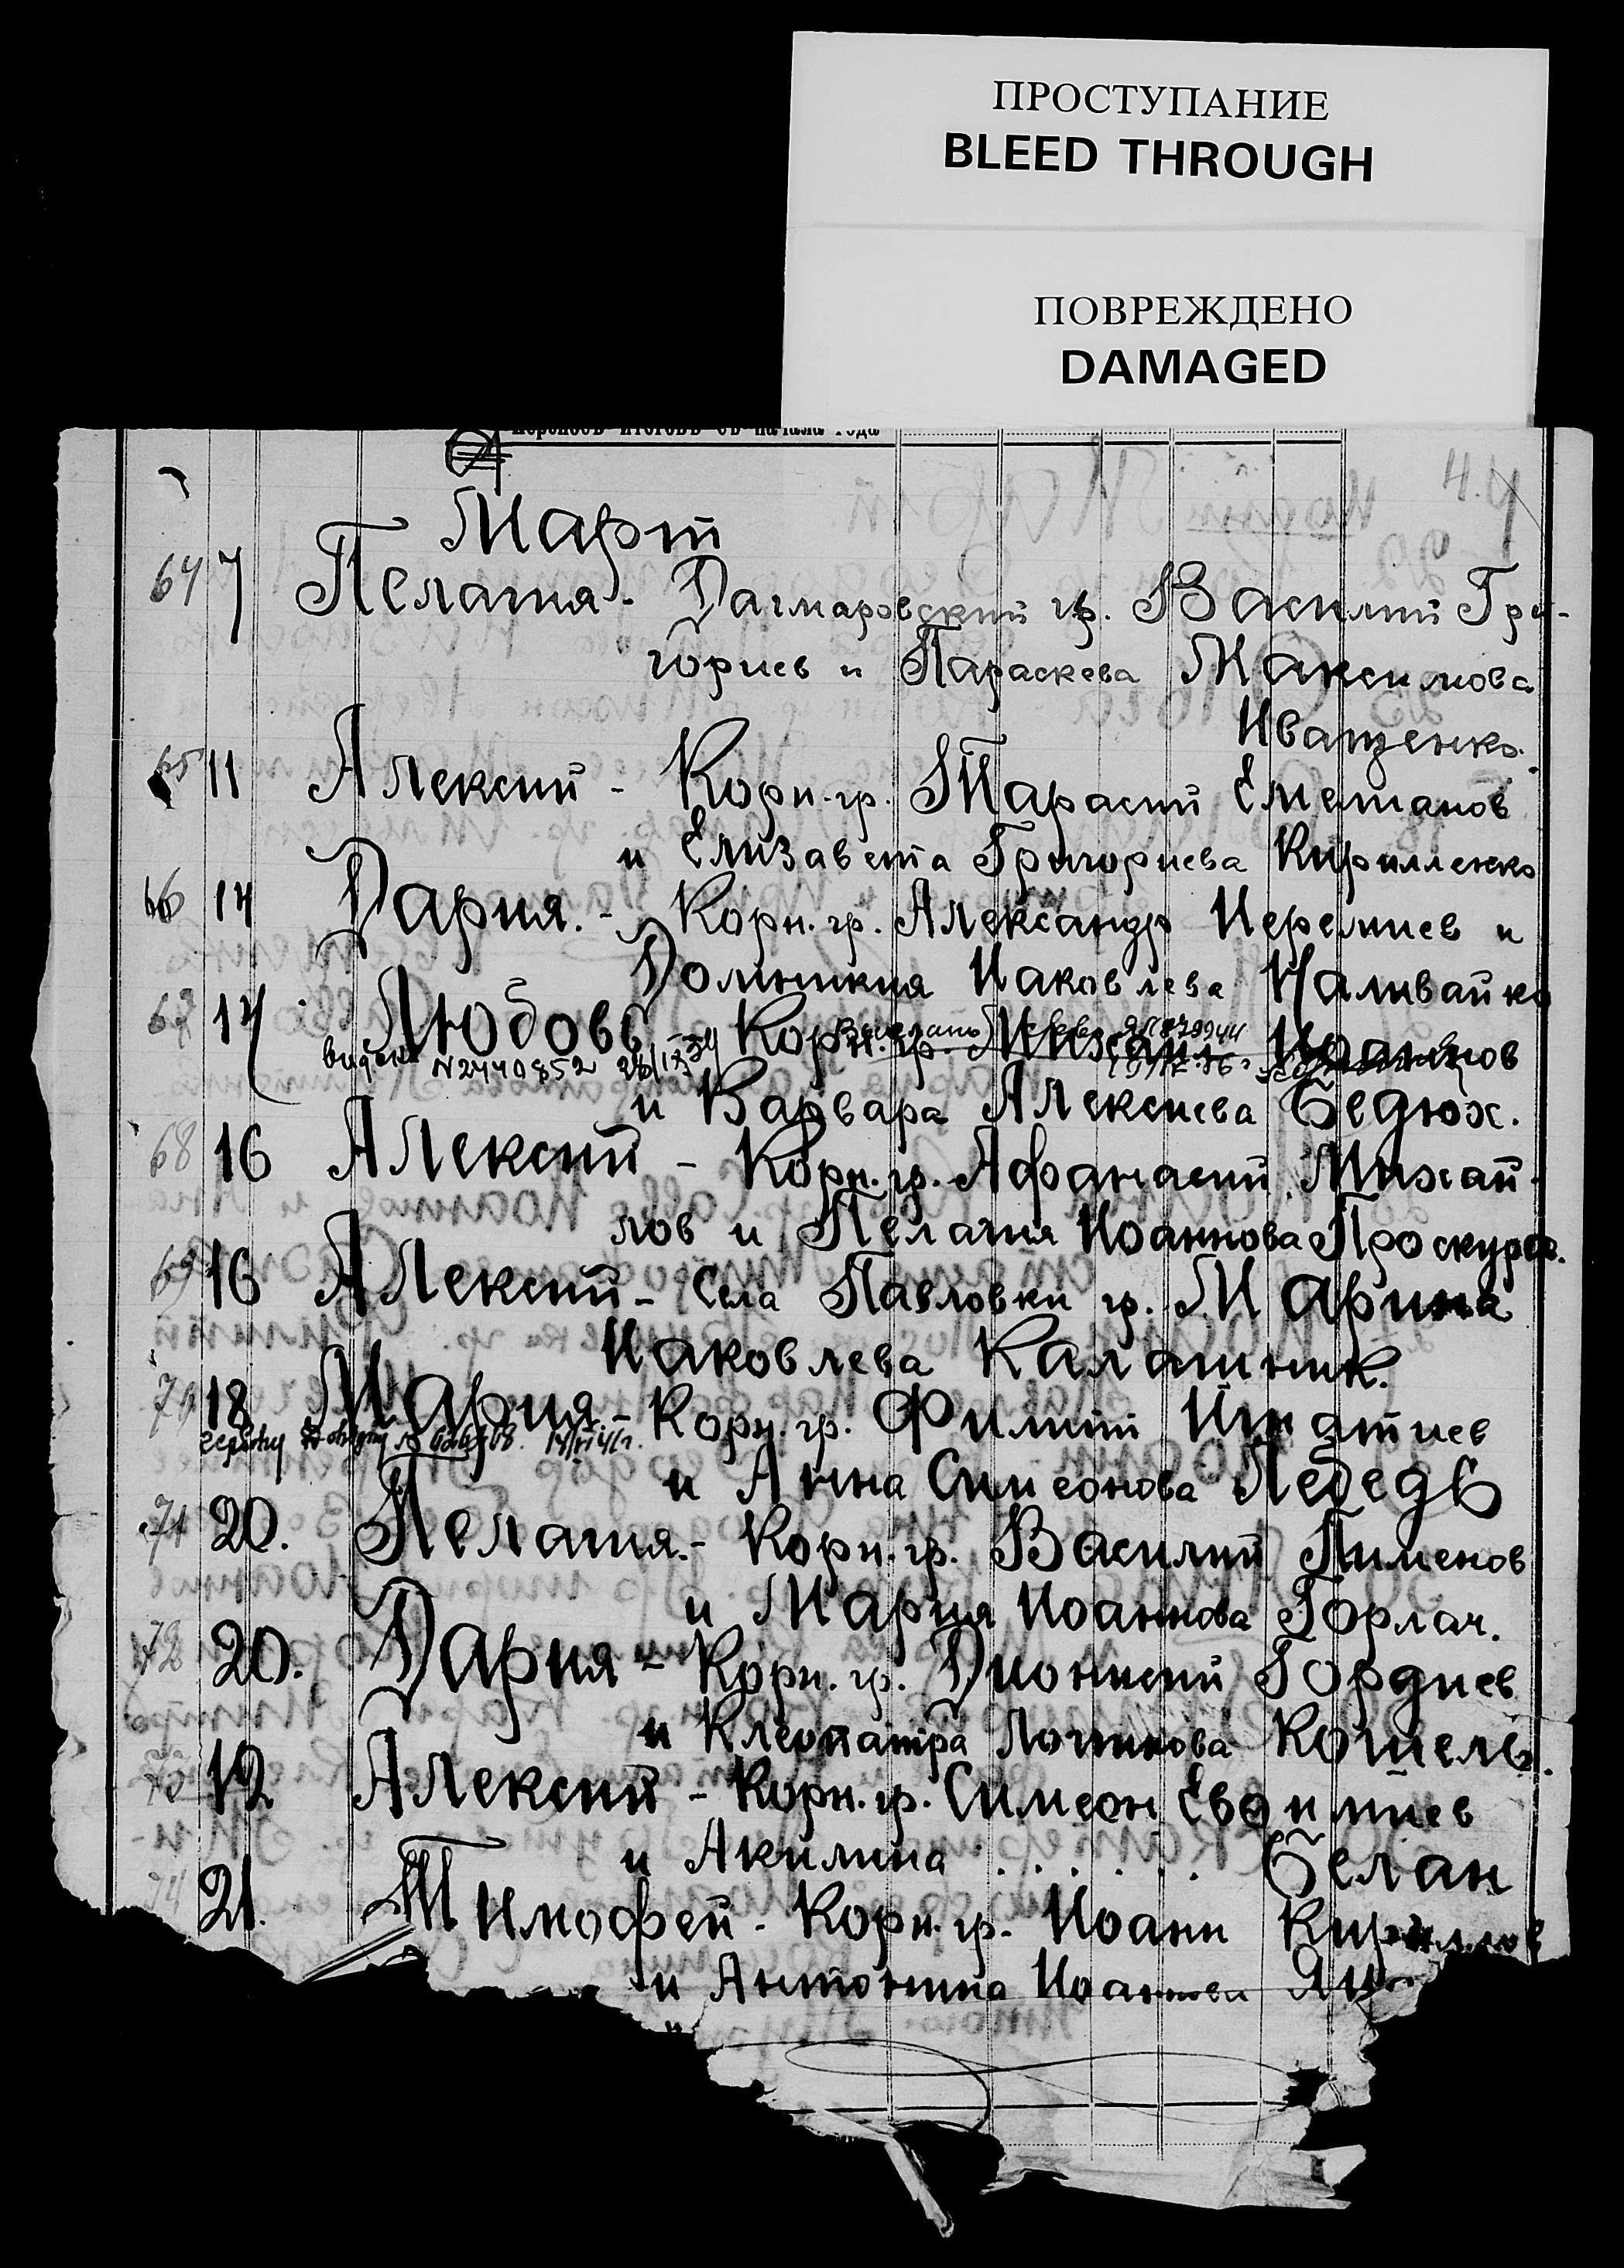 ПРОСТУПАНИЕ
BLEED THROUGH
ПОВРЕЖДЕНО
DAMAGED
Март
64 7 Пелагия - Дагмаровский гр. Василий Гри-
гориев и Параскева Максимова
Иващенко.
65 11 Алексий - Корн. гр. Тарасий Емелианов
и Елизавета Григориева Кирилленко
66 14 Дария. - Корн. гр. Александр Иеремиев и
Домникия Иаковлева Наливайко
67 14 Любовь - Корн. гр. Михаил Иоаннов
N2440852
и Варвара Алексиева Бедюх.
68 16 Алексий - Корн. гр. Афанасий Михай-
лов и Пелагия Иоаннова Проскура.
69 16 Алексий - Села Павловки гр. Марина
Иаковлева Калашник.
70 18 Мария - Корн. гр. Филипп Игнатиев
и Анна Симеонова Лебедь
71 20. Пелагия. - Корн. гр. Василий Пименов
и Мария Иоаннова Горлач.
72 20. Дария - Корн. гр. Дионисий Гордиев
и Клеопатра Логинова Кошель.
73 19 Алексий - Корн. гр. Симеон Евфимиев
и Акилина . . . . . . Белан
74 21. Тимофей - Корн. гр. Иоанн Кириллов
и Антонина Иоаннова